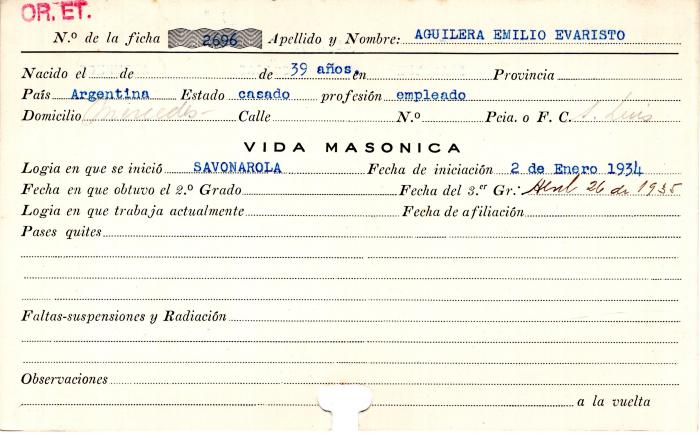 OR. ET.
N.º de la ficha 2696 Apellido y Nombre: AGUILERA EMILIO EVARISTO
Nacido el de de 39 años. en Provincia
País Argentina Estado casado profesión empleado
Domicilio Mercedes Calle N.º Pcia. o F. C. S. Luis
VIDA MASONICA
Logia en que se inició SAVONAROLA Fecha de iniciación 2 de Enero 1934
Fecha en que obtuvo el 2.º Grado Fecha del 3.er Gr.: Abril 26 de 1935
Logia en que trabaja actualmente Fecha de afiliación
Pases quites
Faltas-suspensiones y Radiación
Observaciones
a la vuelta